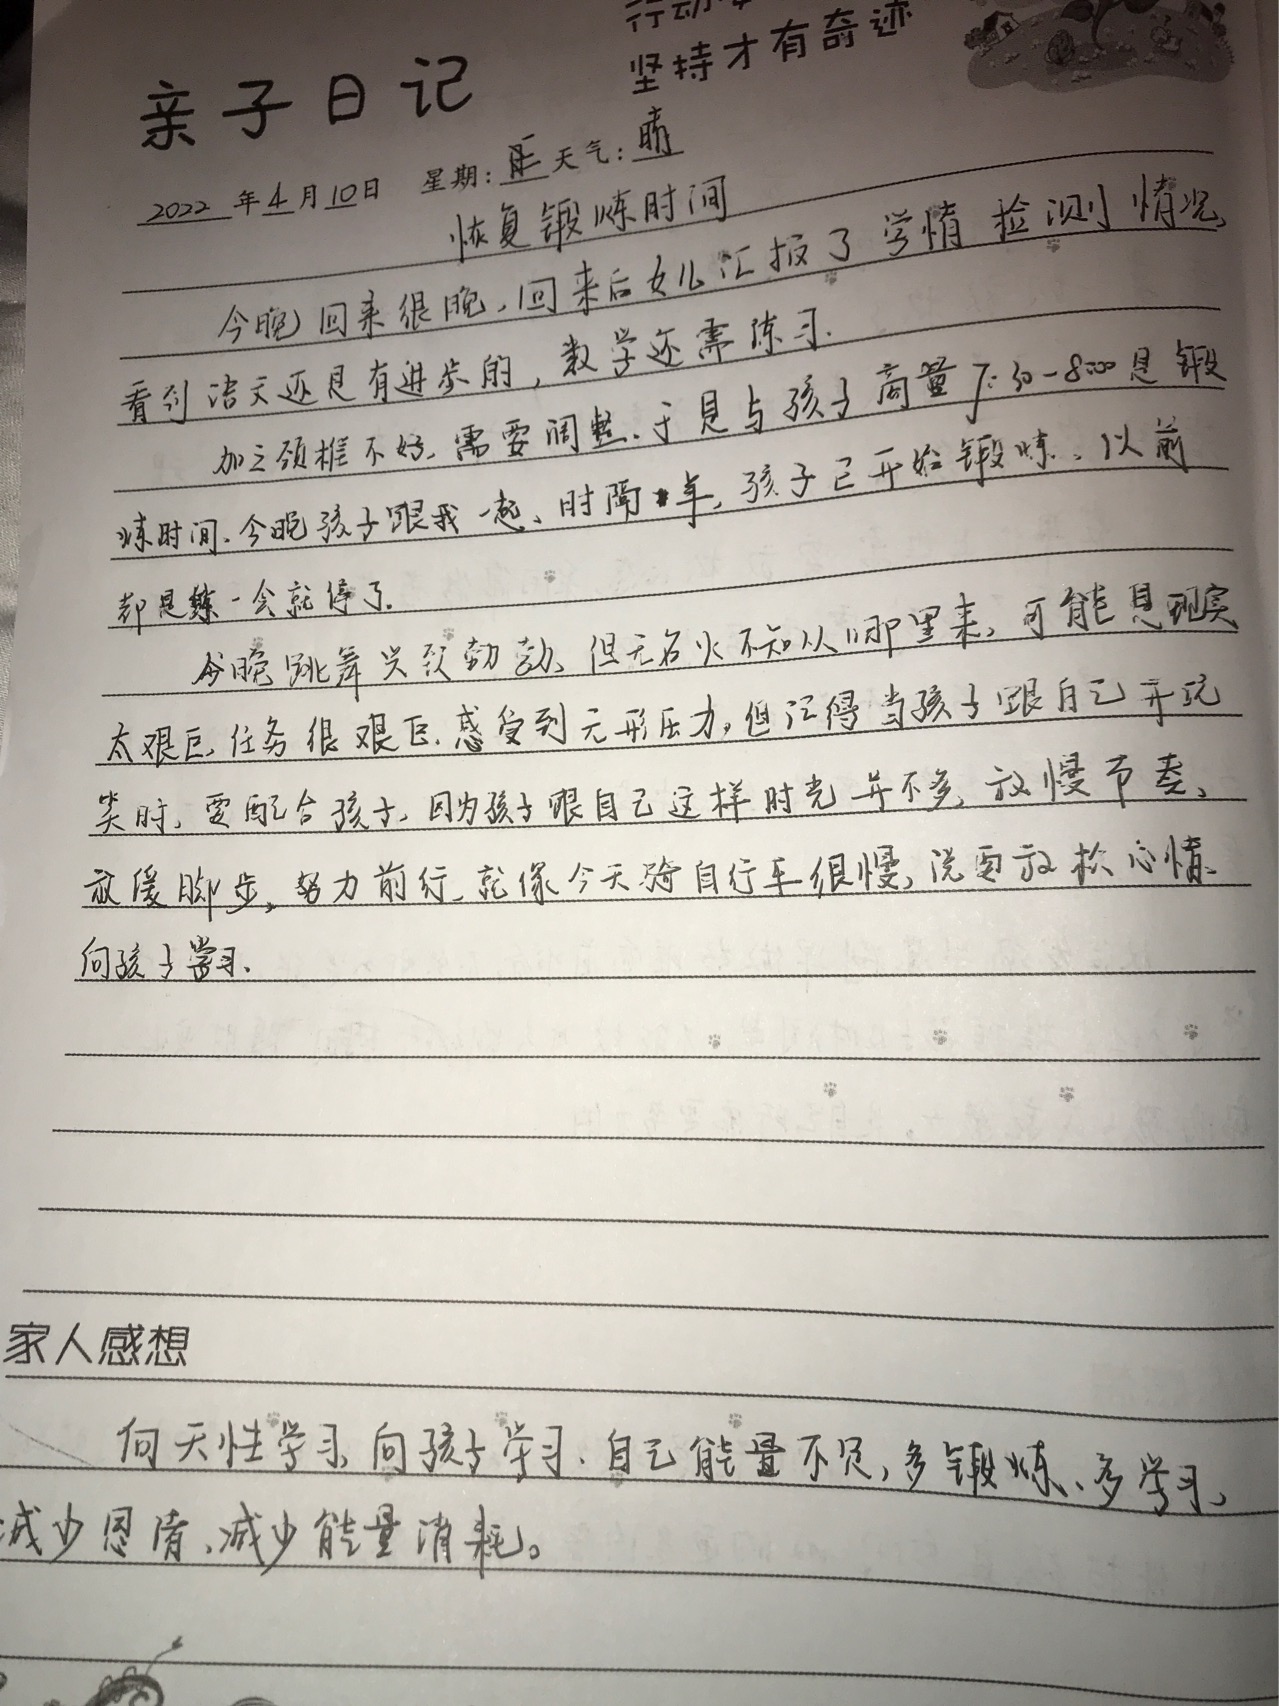 行动
坚持才有奇迹
亲子日记
2022年4月10日 星期: 天气:晴
恢复锻炼时间
今晚回来很晚、回来后女儿汇报了学情检测情况,
看到语文还是有进步的,数学还需练习.
加之颈椎不好、需要调整.于是与孩子商量7:30-8:00是锻
炼时间.今晚孩子跟我一起、时隔 年,孩子已开始锻炼、以前
都是 一会就停了.
今晚跳舞兴致勃勃、但无名火不知从哪里来,可能是现实
太艰巨,任务很艰巨.感受到无形压力,但记得当孩子跟自己开玩
笑时,要配合孩子.因为孩子跟自己这样时光并不多,放慢节奏、
放缓脚步,努力前行,就像今天骑自行车很慢,说要放松心情.
向孩子学习.
家人感想
向天性学习,向孩子学习.自己能量不足,多锻炼、多学习,
减少 、减少能量消耗。